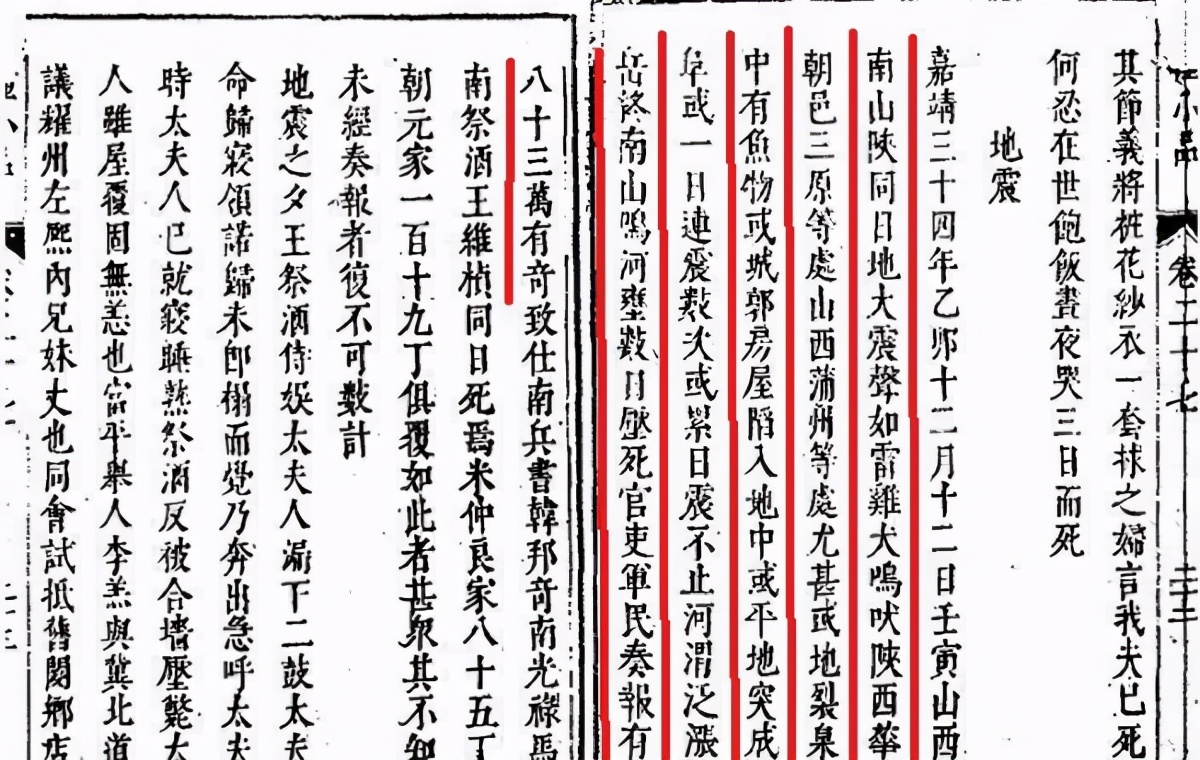 小品 卷二十七
其節義將桩花紗衣一套抹之婦言我夫已死
何忍在世飽飯晝夜哭三日而死
地震
嘉靖三十四年乙夘十二月十二日壬寅山西
南山陝同日地大震聲如雷雞犬鳴吠陝西華
朝邑三原等處山西蒲州等處尤甚或地裂泉
中有魚物或城郭房屋陷入地中或平地突成
阜或一日連震數次或累日震不止河渭泛漲
岳終南山鳴河壅數日壓死官吏軍民奏報有
八十三萬有奇致仕南兵書韓邦奇南光祿馬
南祭酒王維楨同日死焉米仲良家八十五丁
朝元家一百十九丁俱覆如此者甚衆其不知
未經奏報者復不可數計
地震之夕王祭酒侍娛太夫人漏下二鼓太夫
命歸寢領諾歸未卽榻而覺乃奔出急呼太夫
時太夫人已就寢睡熟祭酒反被合墻壓斃太
人雖屋覆固無恙也富平舉人李羔與冀北道
議耀州左熙內兄妹丈也同會試抵舊閿鄉店